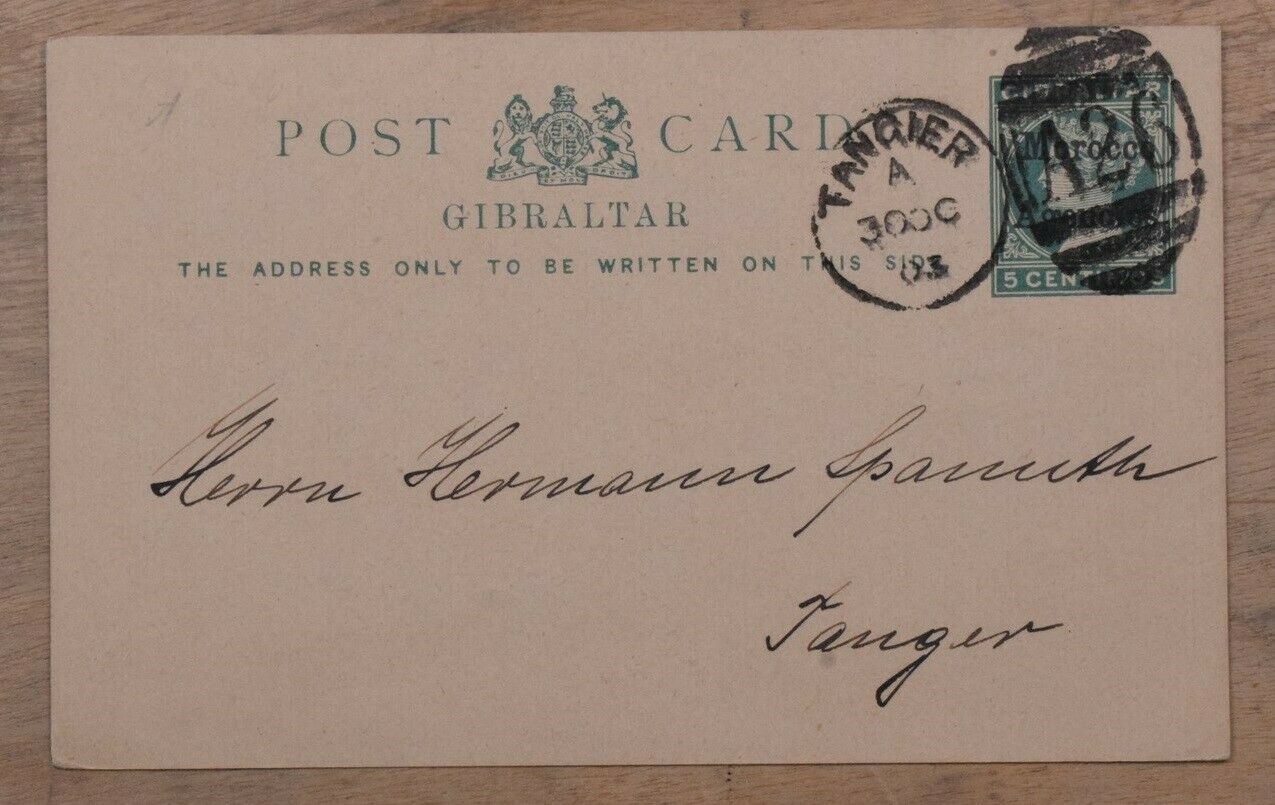 POST CARD
GIBRALTAR
THE ADDRESS ONLY TO BE WRITTEN ON THIS SIDE
TANGIER
A
30 OC
03
A26
GIBRALTAR
Morocco
Agencies
5 CENTIMOS
DIEU ET MON DROIT
Herrn Hermann Spanuth
Tanger